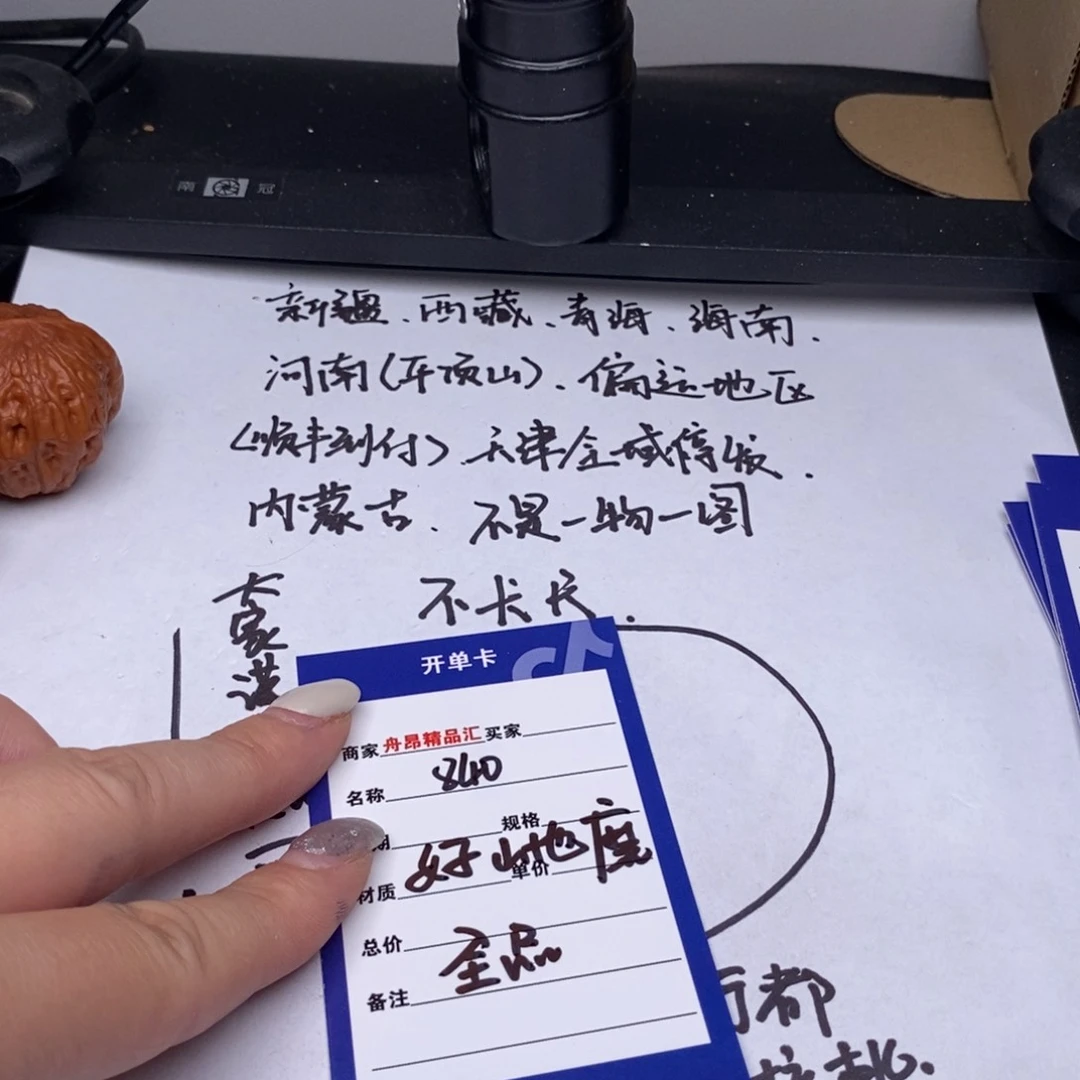 南 冠
新疆、西藏、青海、海南.
河南(平顶山)、偏远地区
(顺丰到付)、天津全域停发.
内蒙古、不是一物一图
不卡尺.
大家
开单卡
商家 舟昂精品汇 买家
名称 840
期 规格
好山地座
材质 单价
总价
全品
备注
都